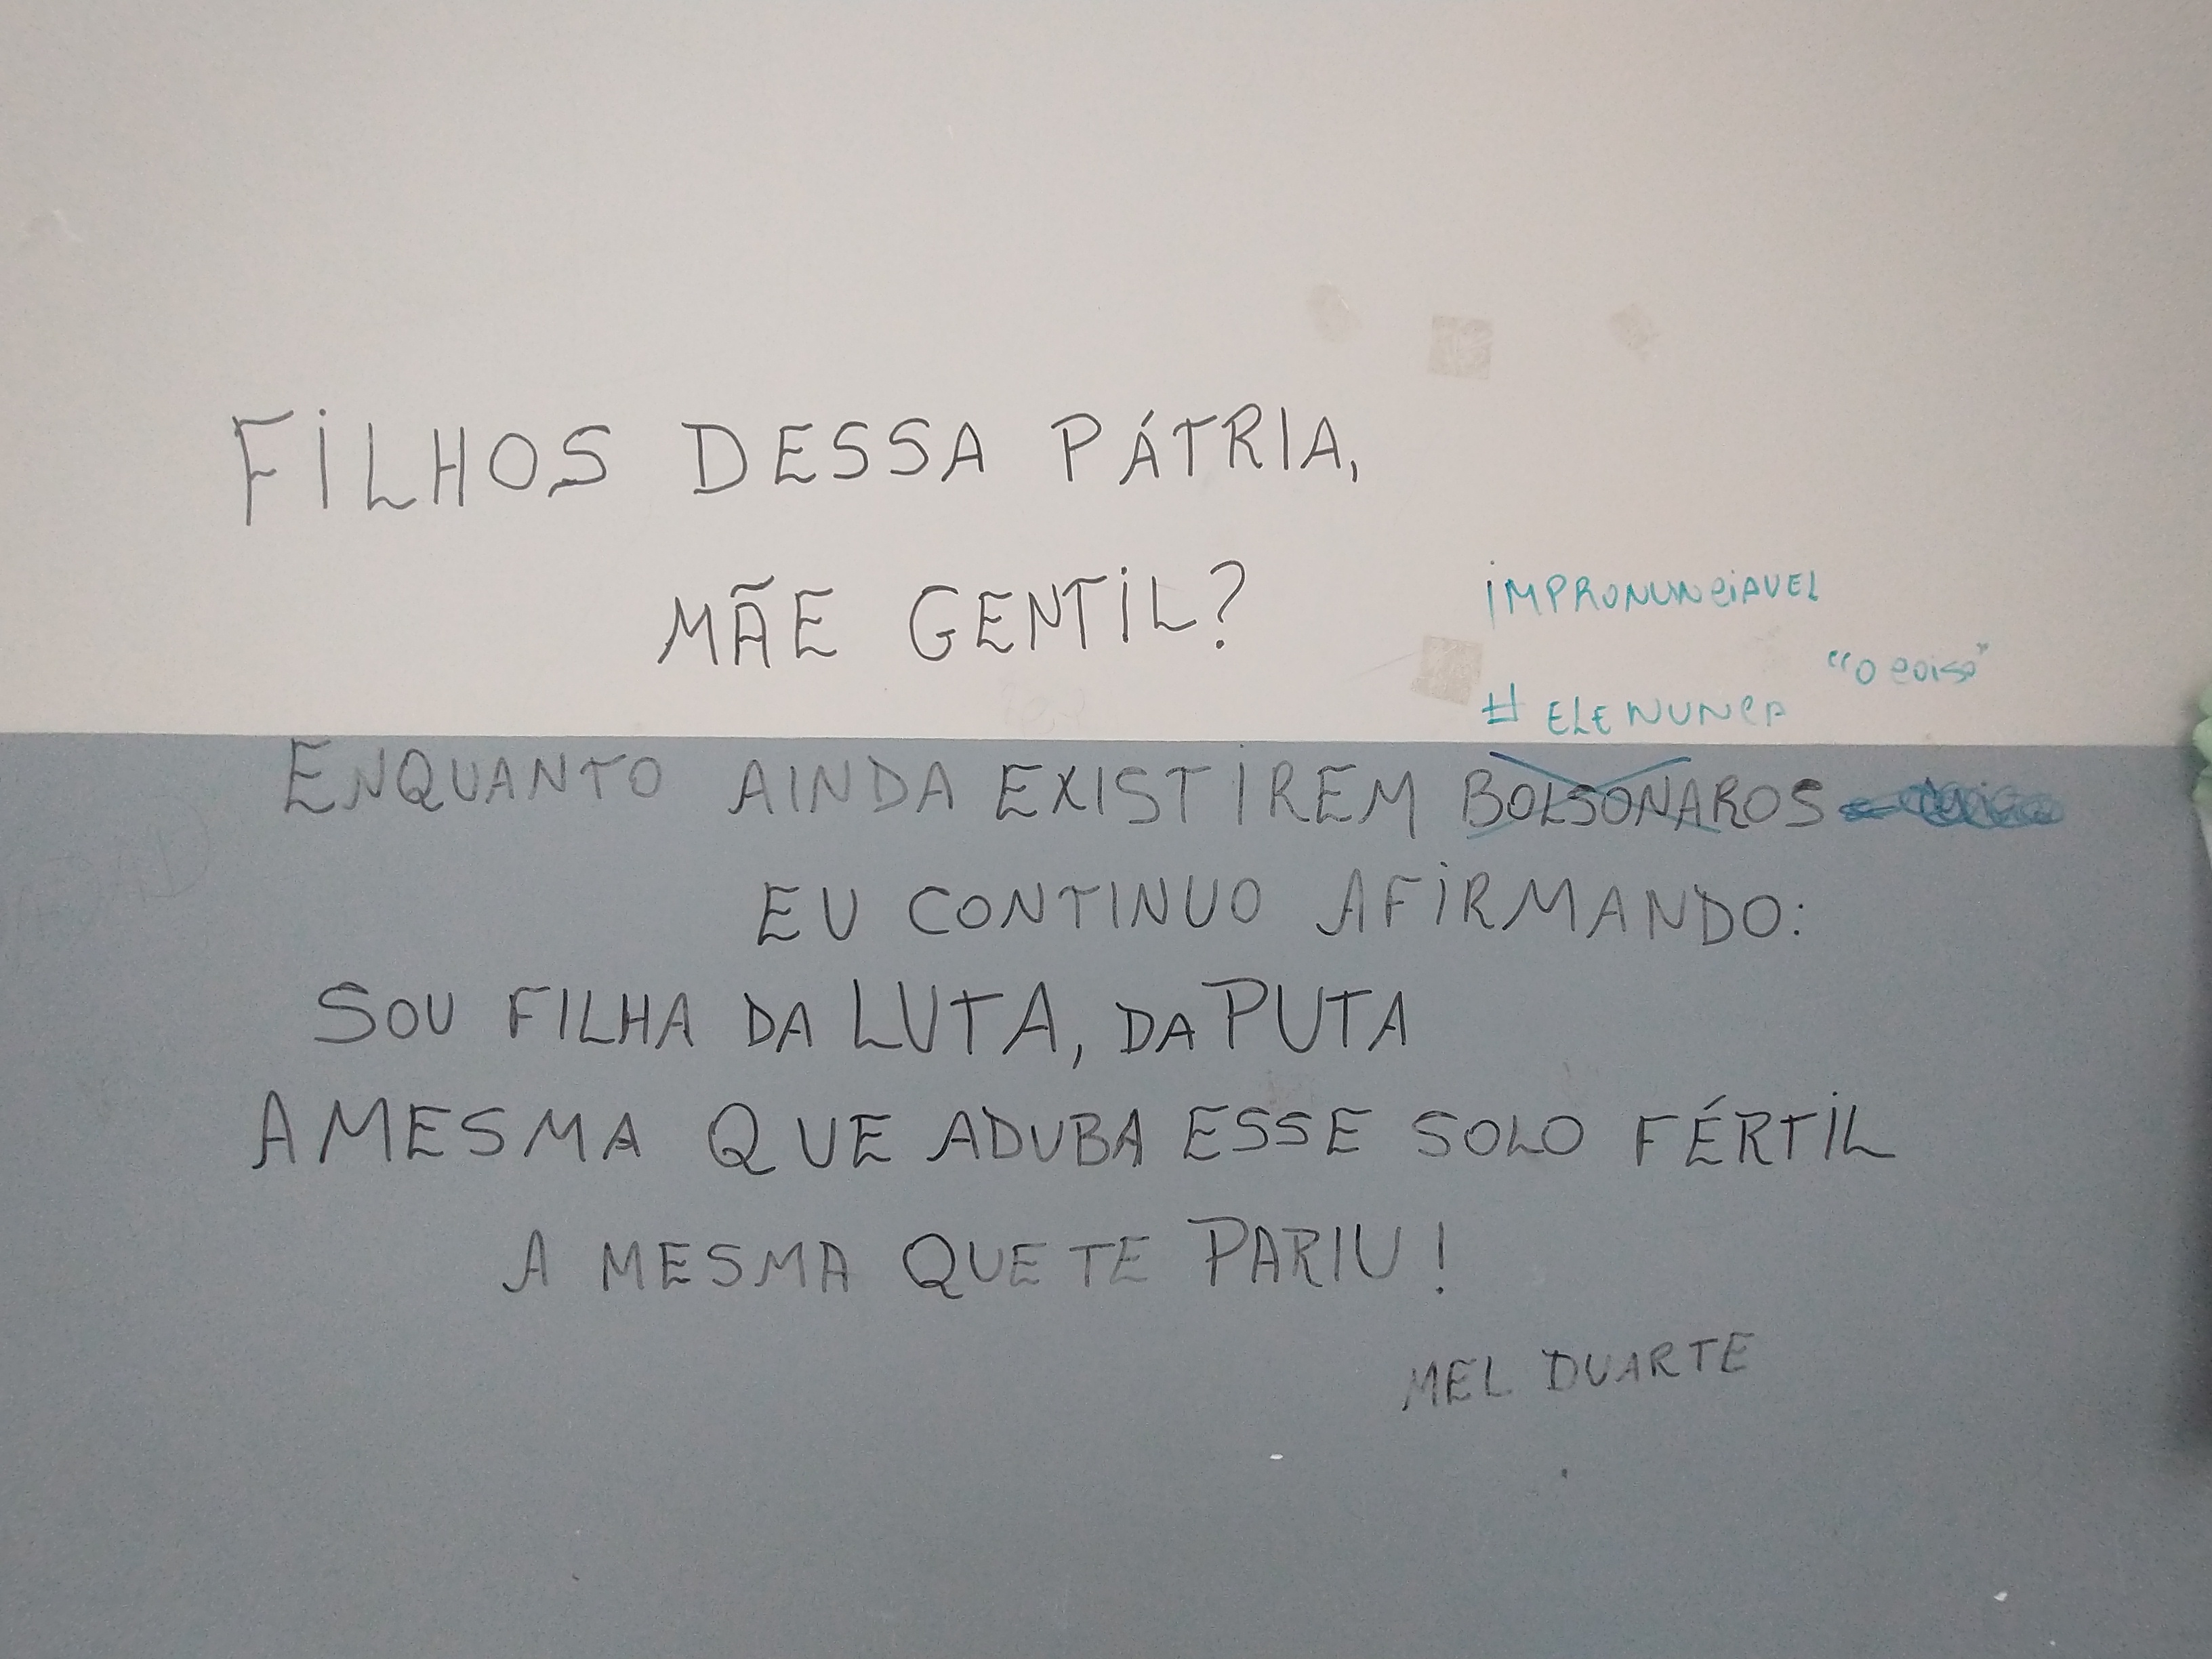 FILHOS DESSA PÁTRIA,
MÃE GENTIL?
IMPRONUNCIAVEL
"O coiso"
# ELE NUNCA
ENQUANTO AINDA EXISTIREM BOLSONAROS
EU CONTINUO AFIRMANDO:
SOU FILHA DA LUTA, DA PUTA
A MESMA QUE ADUBA ESSE SOLO FÉRTIL
A MESMA QUE TE PARIU!
MEL DUARTE